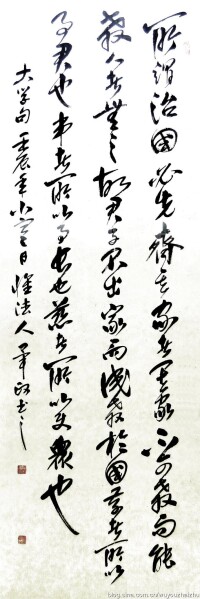 所謂治國必先齊其家者其家不可教而能
教人者無之故君子不出家而成教於國孝者所以
事君也弟者所以事長也慈者所以使衆也
大学句 壬辰年小日惟法人书之
blog.sina.com.cn/wuyouzhaizhu